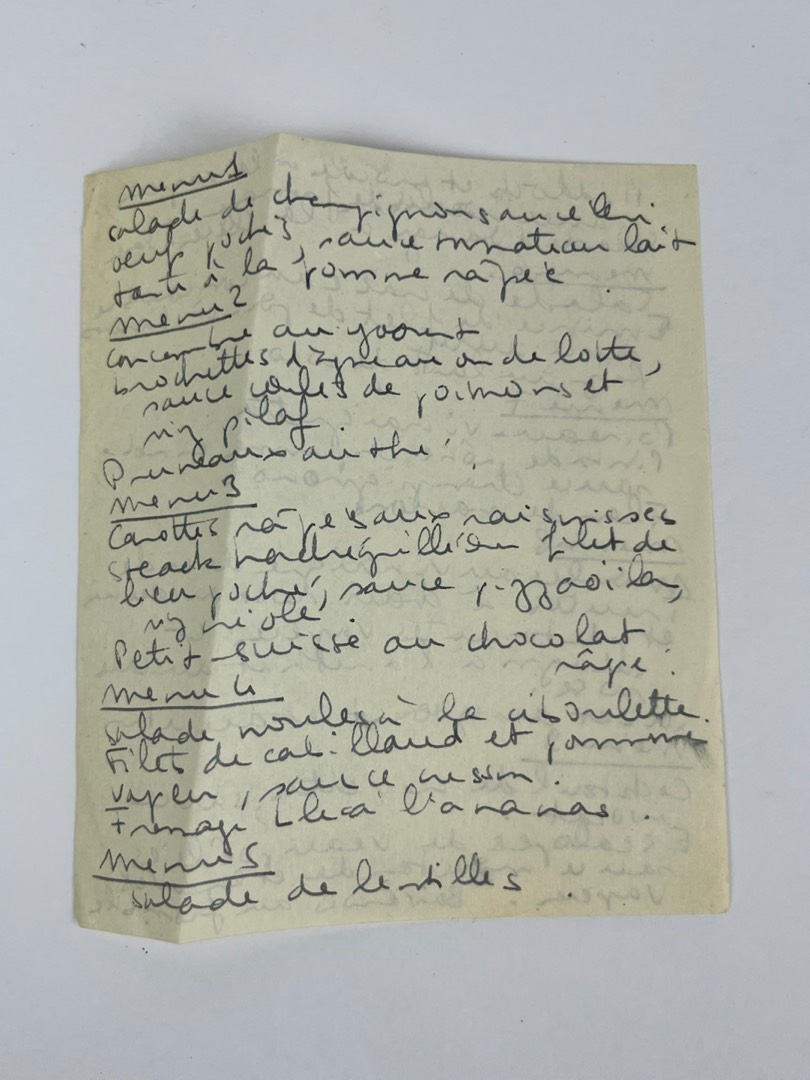 menu 1
salade de champignons sauce
oeufs pochés, sauce tomate au lait
tarte à la pomme râpée.
menu 2
concombre au yaourt
brochettes d'agneau ou de lotte,
sauce coulis de poivrons et
riz pilaf
Pruneaux au thé.
menu 3
Carottes râpées aux raisins secs
steack haché grillé ou filet de
lieu poché, sauce pizzaoïla,
riz créole.
Petit-suisse au chocolat
râpé.
menu 4
salade moules à la ciboulette.
Filets de cabillaud et pomme
vapeur, sauce cresson.
Fromage à l'ananas.
menu 5
salade de lentilles.